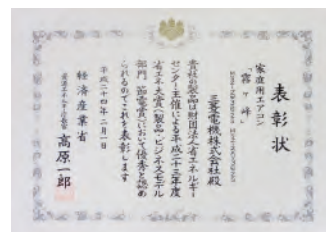 表彰状
家庭用エアコン
「霧ヶ峰」
三菱電機株式会社殿
貴社の製品は財団法人省エネルギー
センター主催による平成二十三年度
省エネ大賞(製品・ビジネスモデル
部門)審査において優秀と認め
られるのでこれを表彰します
平成二十四年二月一日
経済産業省
資源エネルギー庁長官
高原一郎